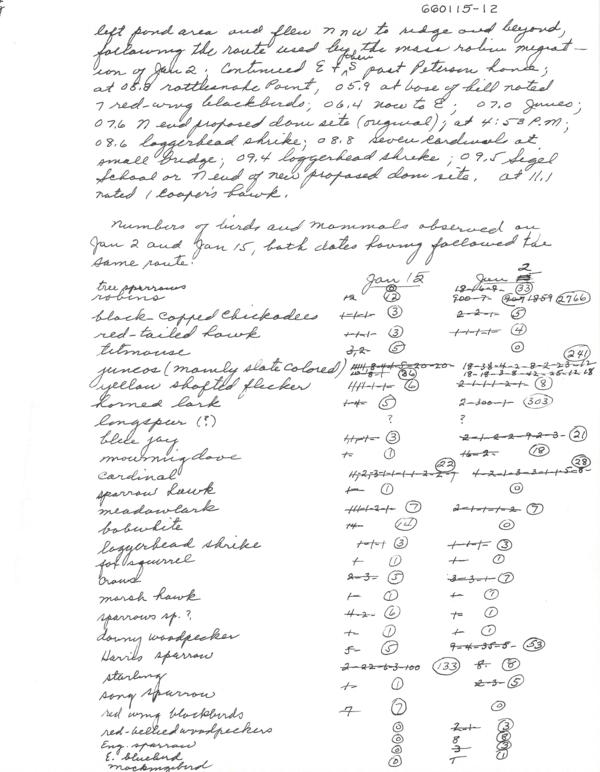 660115-12
left pond area and flew NNW to ridge and beyond,
following the route used by the mass robin migrat-
ion of Jan 2; Continued E & then S past Peterson home;
at 05.8 rattlesnake Point, 05.9 at base of hill noted
7 red-wing blackbirds; 06.4 now to E; 07.0 Junco;
07.6 N end proposed dam site (original); at 4:53 P.M;
08.6 loggerhead shrike; 08.8 seven cardinals at
small bridge; 09.4 loggerhead shrike; 09.5 Sigel
School or N end of new proposed dam site. At 11.1
noted 1 Cooper's hawk.
Numbers of birds and mammals observed on
Jan 2 and Jan 15, both dates having followed the
same route.
Jan 15 Jan 2
tree sparrows 0 18-6-9- 33
robins 12 12 900-7- 1859 2766
black-capped chickadees 1-1-1- 3 2-2-1- 5
red-tailed hawk 1-1-1- 3 1-1-1-1- 4
titmouse 3,2- 5 0
juncos (mainly slate colored) 86 18-38-4-2-8-2-23-12 241
18-18-3-8-42-25-12,18
yellow shafted flicker 6 2-1-1-1-2-1- 8
horned lark 1-4- 5 2-300-1- 303
longspur (?) ? ?
blue jay 3 2-1-2-2-9-2-3- 21
mourning dove 1- 1 16-2- 18
cardinal 22 4-2-1-3-3-1-1-5-8- 28
sparrow hawk 1- 1 0
meadowlark 7 2-1-1-1-2 7
bobwhite 14- 14 0
loggerhead shrike 1-1-1 3 1-1-1- 3
fox squirrel 1- 1 1- 1
crows 2-3- 5 3-3-1- 7
marsh hawk 1- 1 1- 1
sparrows sp.? 4-2- 6 1- 1
downy woodpecker 1- 1 1- 1
Harris sparrow 5- 5 9-4-35-5- 53
starling 2-22-6-3-100 133 8- 8
song sparrow 1- 1 2-3- 5
red wing blackbirds 7 7 0
red-bellied woodpeckers 0 2-1- 3
Eng. sparrow 0 8 8
E. bluebird 0 3 3
mockingbird 0 1 1